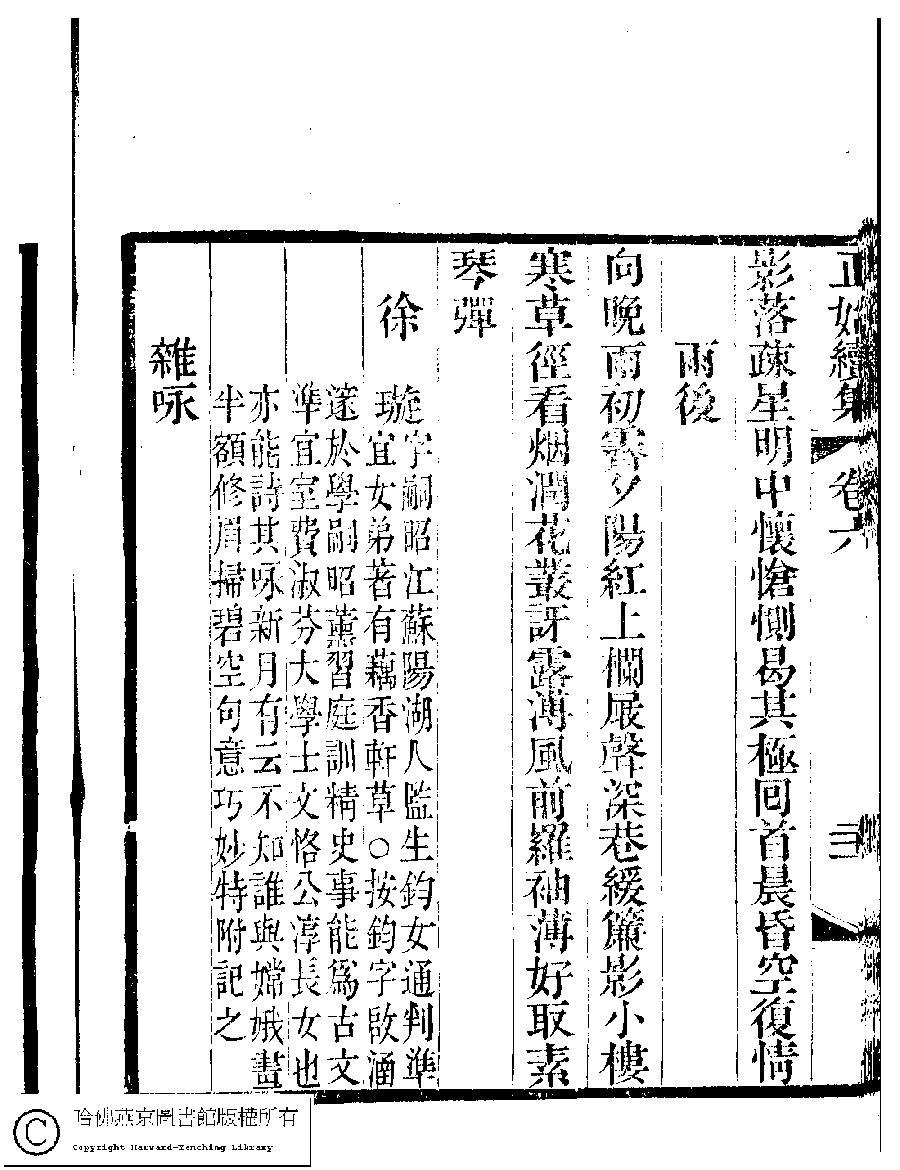 正始續集 卷六 三
影落疎星明中懷愴惻曷其極囘首晨昏空復情
雨後
向晚雨初霽夕陽紅上欄屐聲深巷緩簾影小樓
寒草徑看烟潤花叢訝露溥風前羅袖薄好取素
琴彈
徐
璇字嗣昭江蘇陽湖人監生鈞女通判準
宜女弟著有藕香軒草○按鈞字啟涵
邃於學嗣昭薰習庭訓精史事能爲古文
準宜室費淑芬大學士文恪公淳長女也
亦能詩其咏新月有云不知誰與嫦娥畫
半額修眉掃碧空句意巧妙特附記之
雜咏
哈佛燕京圖書館版權所有
Copyright Harvard-Yenching Library